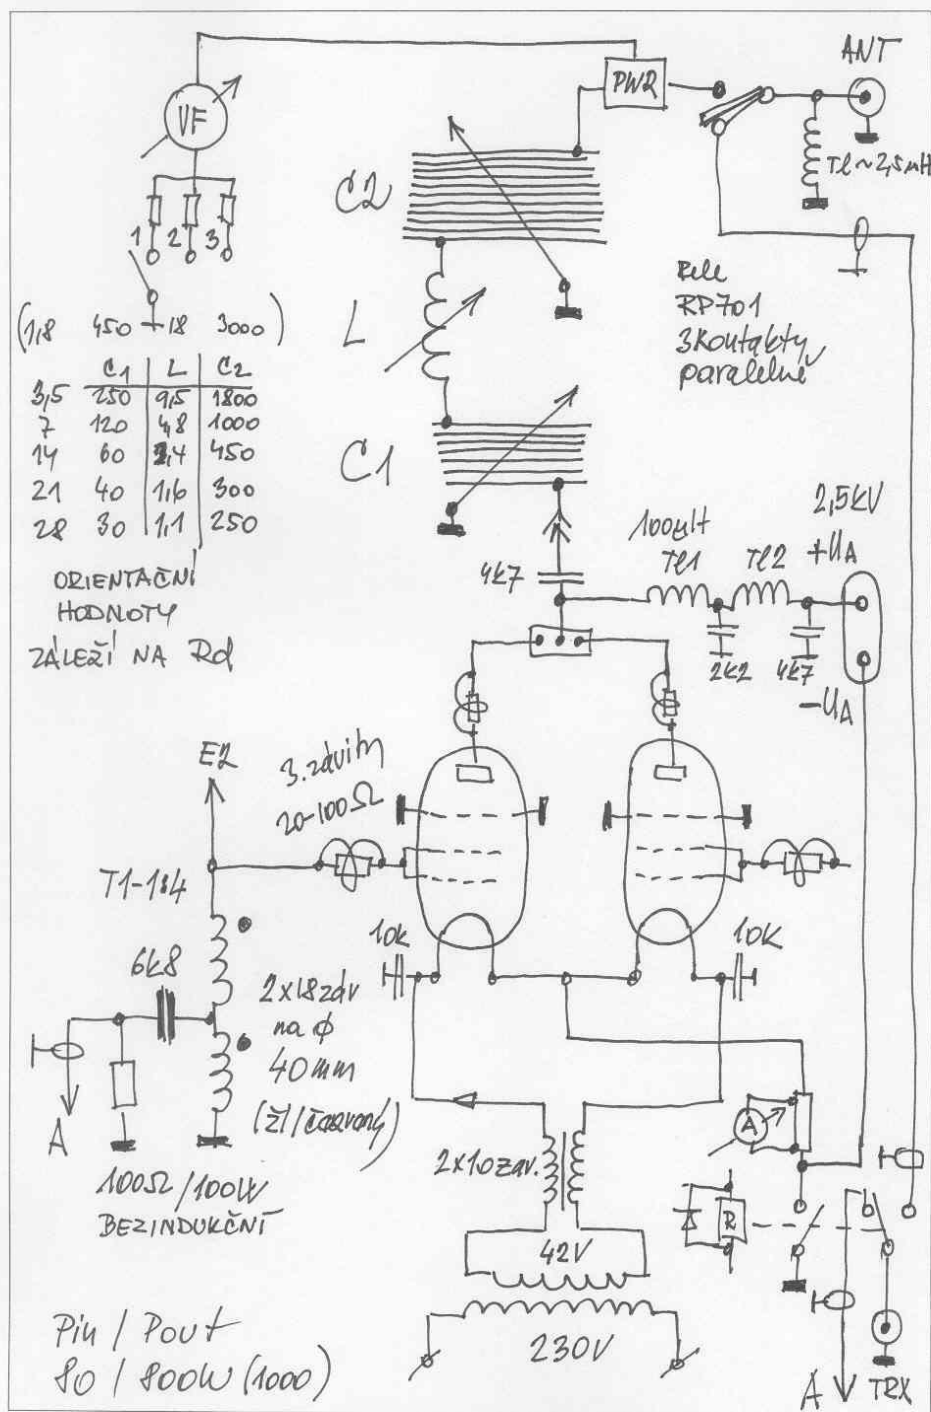 ANT
PWR
VF
Tl~2,5µH
C2
1 2 3
Rele
RP701
3Kontakty
paralelně
L
(1,8 450 18 3000)
C1 L C2
3,5 250 9,5 1800
7 120 4,8 1000
14 60 2,4 450
21 40 1,6 300
28 30 1,1 250
C1
ORIENTAČNÍ
HODNOTY
ZÁLEŽÍ NA Rd
2,5kV
100µH
Tl1 Tl2 +UA
4k7
2k2 4k7
-UA
E2
3.závity
20-100Ω
T1-1:4
10k 10k
6k8
2x18záv
na ϕ
40mm
A
A
2x10záv.
100Ω/100W
BEZINDUKČNÍ
R
42V
230V
Pin / Pout
80 / 800W (1000)
A TRX